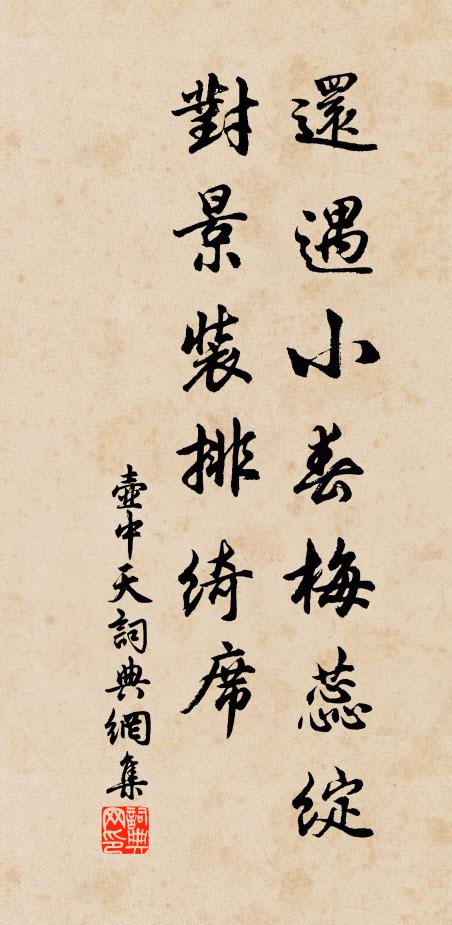 還遇小春梅蕊綻
對景裝排綺席
壺中天詞典網集
詞典网印